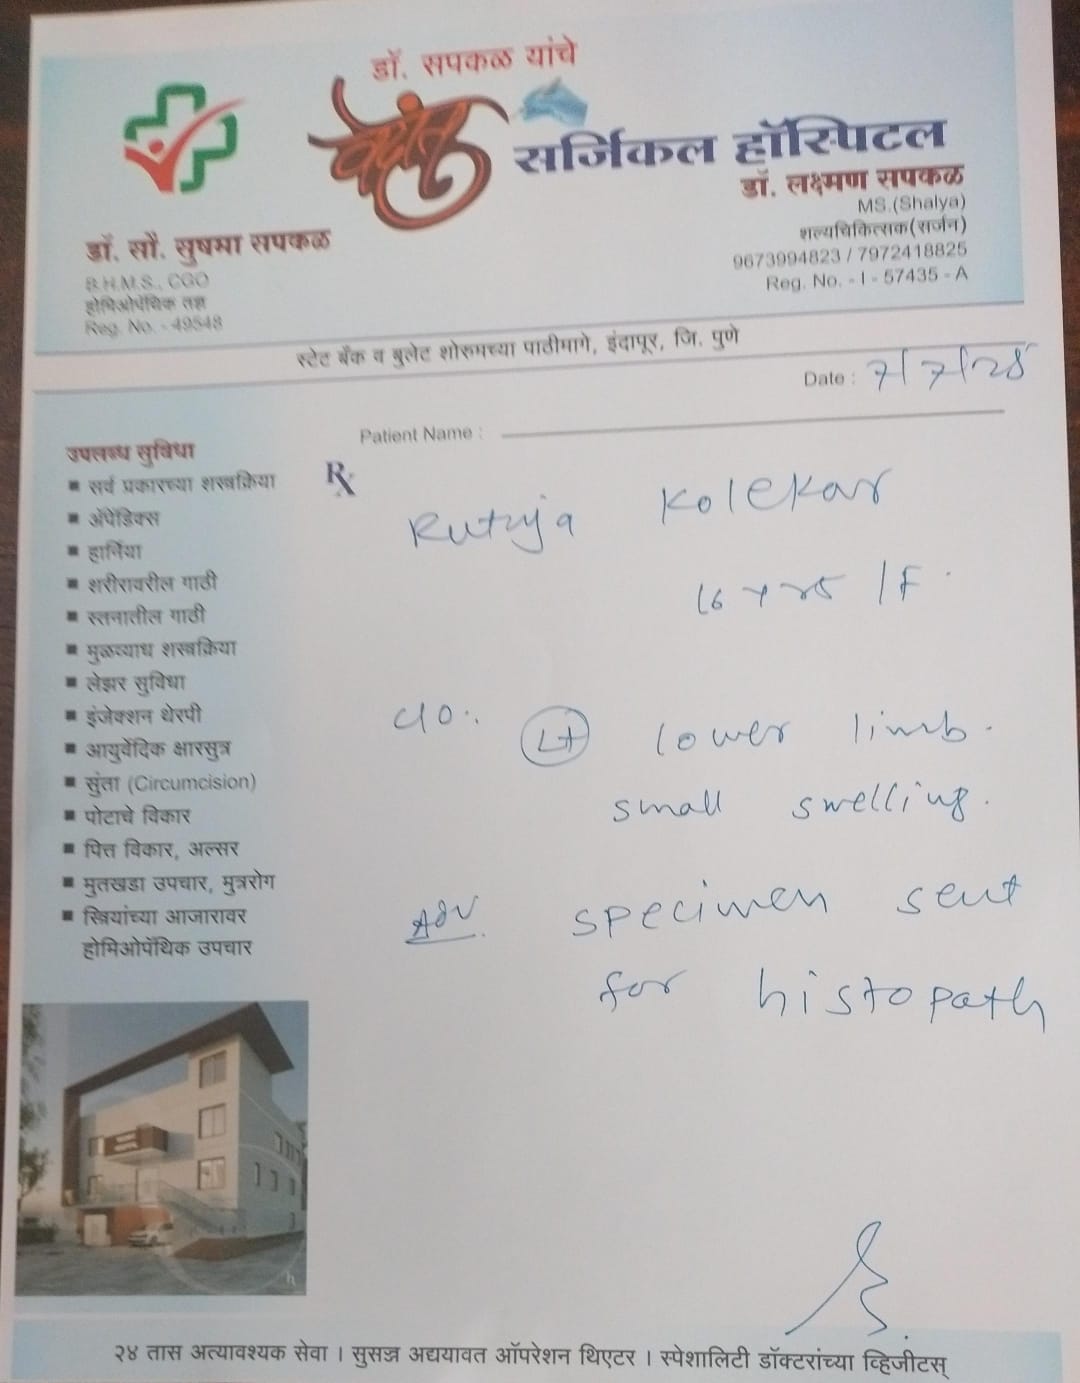 डॉ. सपकळ यांचे
वेदांत सर्जिकल हॉस्पिटल
डॉ. लक्ष्मण सपकळ
MS.(Shalya)
शल्यचिकित्सक(सर्जन)
9673994823 / 7972418825
Reg. No. - I - 57435 - A
डॉ. सौ. सुषमा सपकळ
B.H.M.S., CGO
होमिओपॅथिक तज्ञ
Reg. No. - 49548
स्टेट बँक व बुलेट शोरुमच्या पाठीमागे, इंदापूर, जि. पुणे
Date : 7/7/25
Patient Name :
उपलब्ध सुविधा
■ सर्व प्रकारच्या शस्त्रक्रिया
■ ॲपेंडिक्स
■ हार्निया
■ शरीरावरील गाठी
■ स्तनातील गाठी
■ मुळव्याध शस्त्रक्रिया
■ लेझर सुविधा
■ इंजेक्शन थेरपी
■ आयुर्वेदिक क्षारसुत्र
■ सुंता (Circumcision)
■ पोटाचे विकार
■ पित्त विकार, अल्सर
■ मुतखडा उपचार, मुत्ररोग
■ स्त्रियांच्या आजारावर
होमिओपॅथिक उपचार
Rx
Rutuja Kolekar
16 yrs / F.
c/o :. Lt lower limb.
small swelling.
Adv. specimen sent
for histopath
२४ तास अत्यावश्यक सेवा । सुसज्ज अद्ययावत ऑपरेशन थिएटर । स्पेशालिटी डॉक्टरांच्या व्हिजीटस्